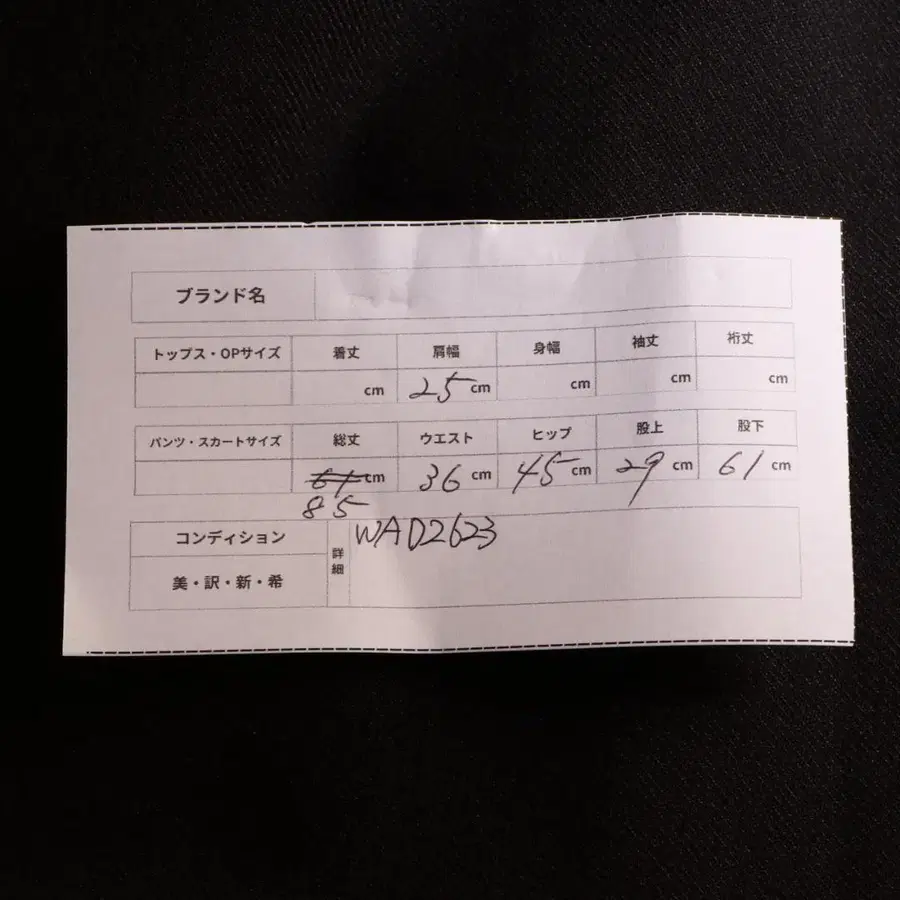 ブランド名
トップス・OPサイズ 着丈 肩幅 身幅 袖丈 裄丈
cm 25 cm cm cm cm
パンツ・スカートサイズ 総丈 ウエスト ヒップ 股上 股下
61 cm 36 cm 45 cm 29 cm 61 cm
85
コンディション 詳細 WAD2623
美・訳・新・希